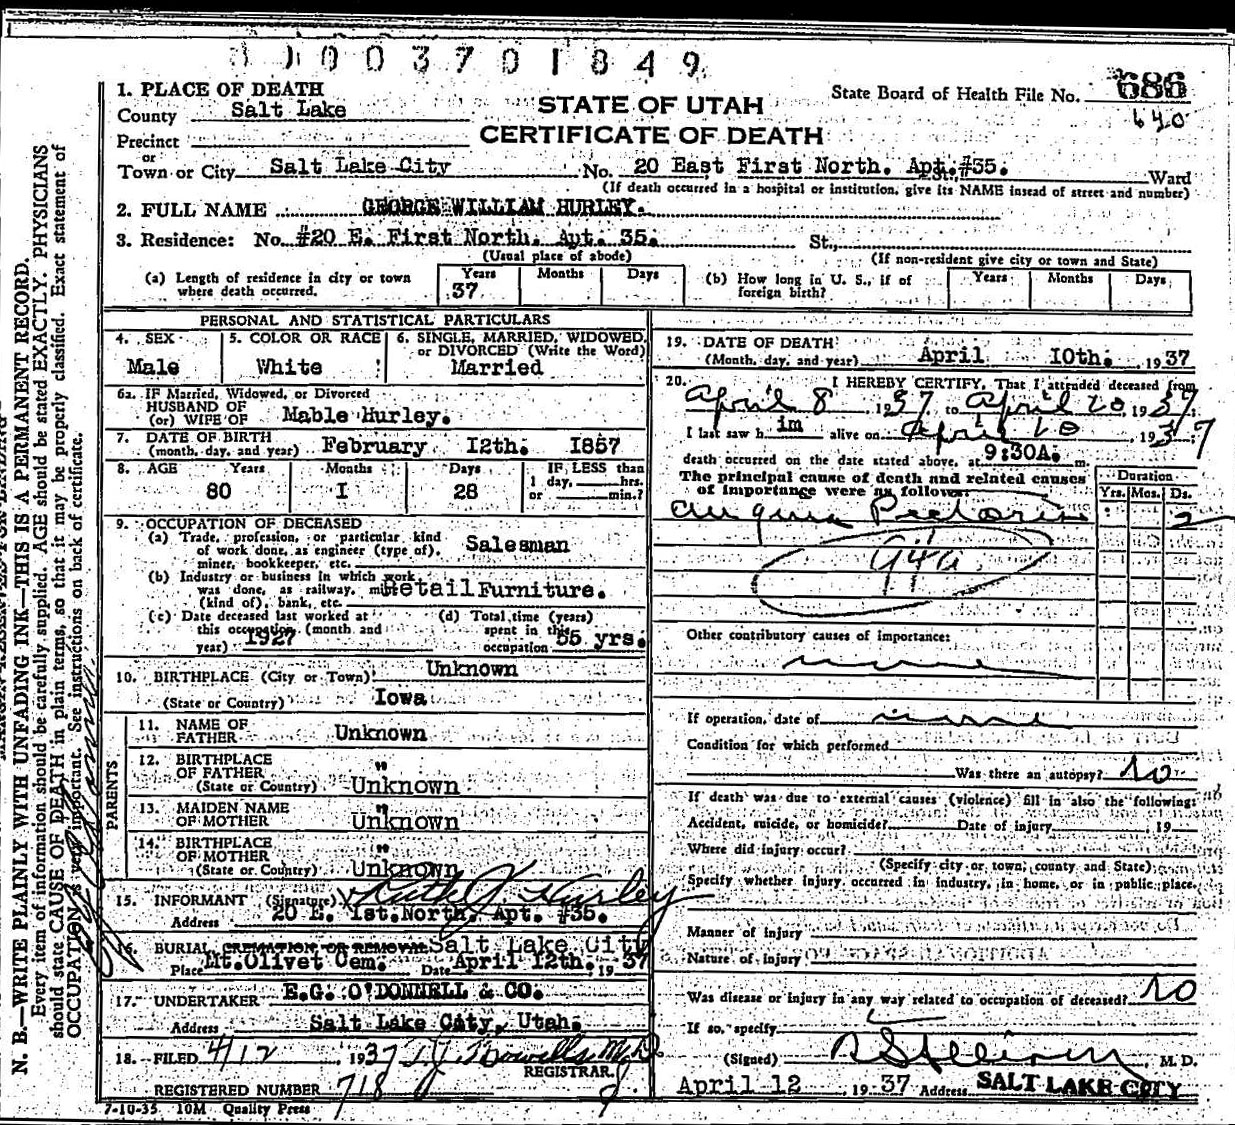 0003701849
1. PLACE OF DEATH
County Salt Lake
STATE OF UTAH
State Board of Health File No. 686
640
Precinct
CERTIFICATE OF DEATH
or
Town or City Salt Lake City No. 20 East First North. Apt. #35. St., Ward
(If death occurred in a hospital or institution, give its NAME insead of street and number)
2. FULL NAME GEORGE WILLIAM HURLEY.
3. Residence: No. #20 E. First North. Apt. 35. St.,
(Usual place of abode) (If non-resident give city or town and State)
(a) Length of residence in city or town where death occurred. Years 37 Months Days
(b) How long in U. S., if of foreign birth? Years Months Days
PERSONAL AND STATISTICAL PARTICULARS
4. SEX Male
5. COLOR OR RACE White
6. SINGLE, MARRIED, WIDOWED, or DIVORCED (Write the Word) Married
6a. IF Married, Widowed, or Divorced
HUSBAND OF
(or) WIFE OF Mable Hurley.
7. DATE OF BIRTH
(month, day, and year) February 12th. 1857
8. AGE Years 80 Months I Days 28 IF LESS than 1 day, hrs. or min.?
9. OCCUPATION OF DECEASED
(a) Trade, profession, or particular kind
of work done, as engineer (type of), Salesman
miner, bookkeeper, etc.
(b) Industry or business in which work
was done, as railway, Retail Furniture.
(kind of), bank, etc.
(c) Date deceased last worked at
this occupation (month and
year) 1927
(d) Total time (years)
spent in this
occupation 55 yrs.
10. BIRTHPLACE (City or Town) Unknown
(State or Country) Iowa
PARENTS
11. NAME OF
FATHER Unknown
12. BIRTHPLACE "
OF FATHER
(State or Country) Unknown
13. MAIDEN NAME "
OF MOTHER Unknown
14. BIRTHPLACE "
OF MOTHER
(State or Country) Unknown
15. INFORMANT (Signature) X Hurley
Address 20 E. 1st. North, Apt. #35.
16. BURIAL, CREMATION OR REMOVAL Salt Lake City
Place Mt. Olivet Cem. Date April 12th. 1937
17. UNDERTAKER E.G. O'DONNELL & CO.
Address Salt Lake City, Utah.
18. FILED 4/12 1937
REGISTRAR.
REGISTERED NUMBER 718
7-10-35 10M Quality Press
19. DATE OF DEATH
(Month, day, and year) April 10th. 1937
20. I HEREBY CERTIFY, That I attended deceased from
April 8 1937 to April 10, 1937
I last saw h im alive on April 10, 1937
death occurred on the date stated above, at 9:30A. m.
The principal cause of death and related causes
of importance were as follows:
Duration
Yrs. Mos. Ds.
Angina Pectoris 2
94a
Other contributory causes of importance:
none
If operation, date of none
Condition for which performed
Was there an autopsy? No
If death was due to external causes (violence) fill in also the following:
Accident, suicide, or homicide? Date of injury 19
Where did injury occur?
(Specify city or town, county and State)
Specify whether injury occurred in industry, in home, or in public place.
Manner of injury
Nature of injury
Was disease or injury in any way related to occupation of deceased? No
If so, specify
(Signed) M. D.
April 12 1937 Address SALT LAKE CITY
N. B.—WRITE PLAINLY WITH UNFADING INK—THIS IS A PERMANENT RECORD.
Every item of information should be carefully supplied. AGE should be stated EXACTLY. PHYSICIANS
should state CAUSE OF DEATH in plain terms, so that it may be properly classified. Exact statement of
OCCUPATION is very important. See instructions on back of certificate.